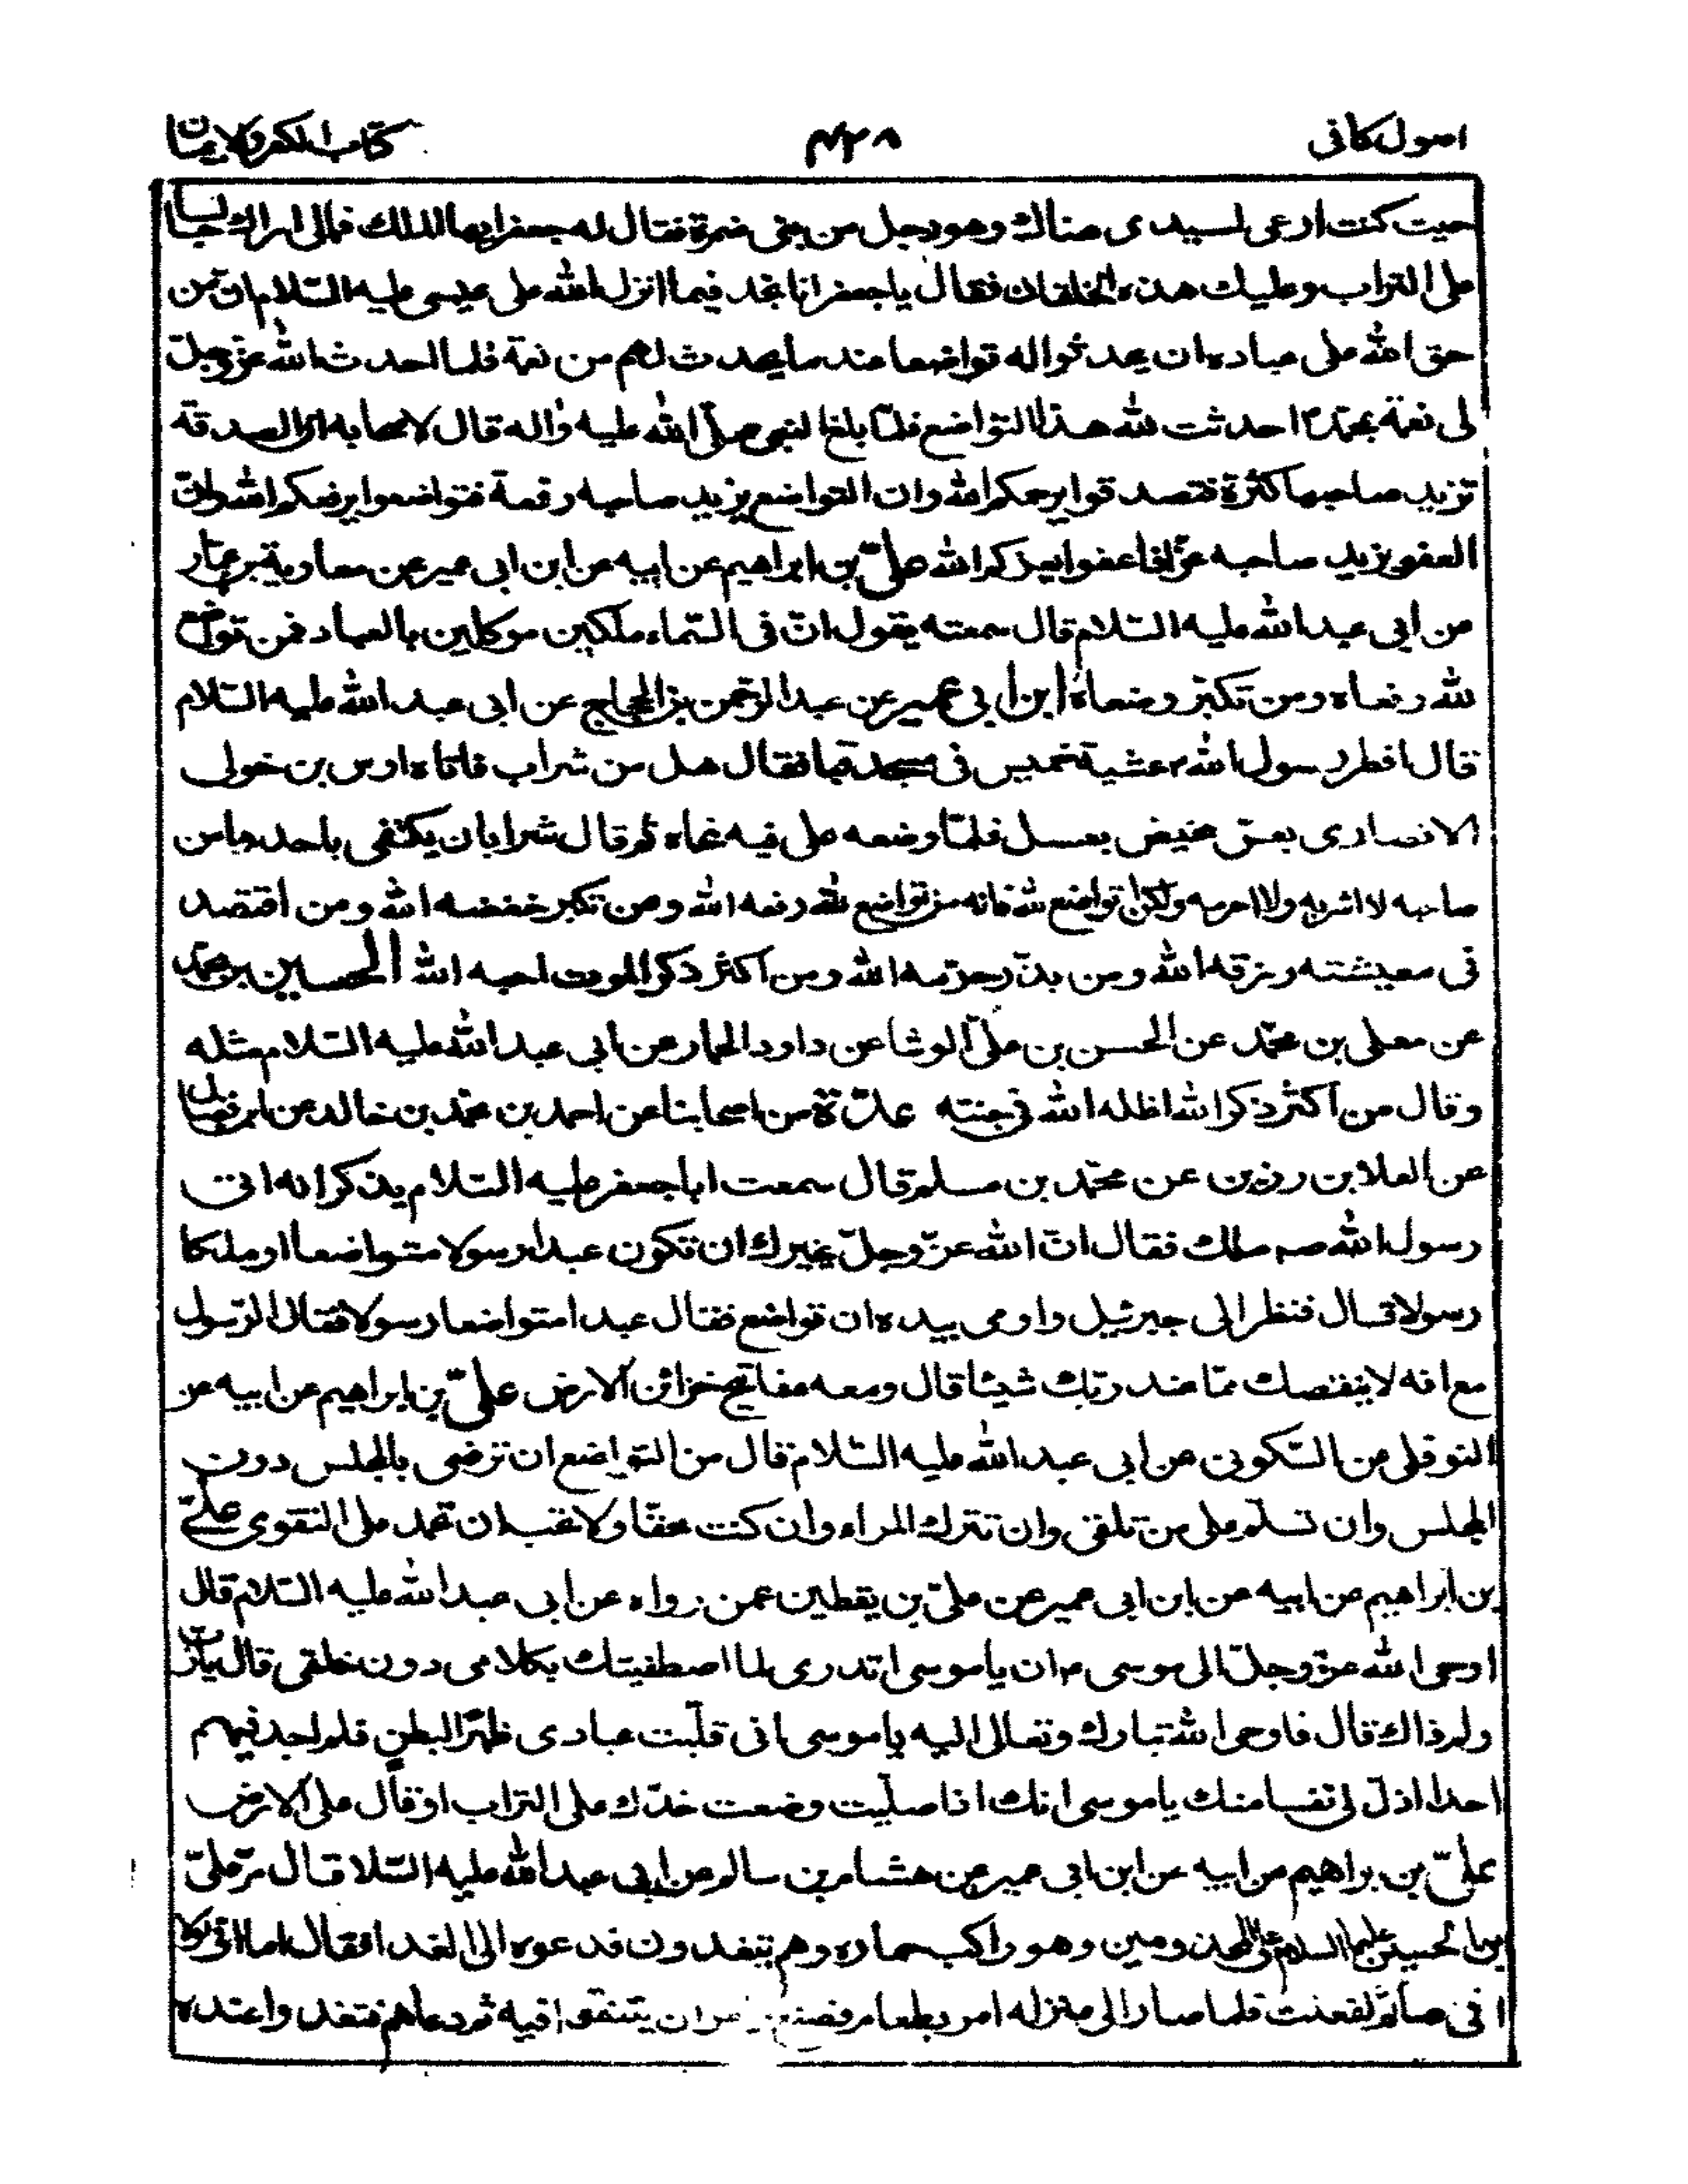 اصول كافى ۴۲۸ كتاب الكفر والايمان
حيث كنت ارعى لسيدى هناك وهو رجل من بنى ضمرة فقال له جعفر ايها الملك فمالى اراك جالسا
على التراب وعليك هذه الخلقان فقال يا جعفر انا نجد فيما انزل الله على عيسى عليه السّلام انّ من
حق الله على عباده ان يحدثوا له تواضعا عند ما يحدث لهم من نعمة فلما احدث الله عزّ وجلّ
لى نعمة بمحمّد احدثت لله هذا التواضع فلمّا بلغ النبى صلّى الله عليه واله قال لاصحابه انّ الصدقة
تزيد صاحبها كثرة فتصدقوا يرحمكم الله وان التواضع يزيد صاحبه رفعة فتواضعوا يرفعكم الله وانّ
العفو يزيد صاحبه عزّا فاعفوا يعزكم الله علىّ بن ابراهيم عن ابيه عن ابن ابى عمير عن معاوية بن عمّار
عن ابى عبد الله عليه السّلام قال سمعته يقول انّ فى السّماء ملكين موكلين بالعباد فمن تواضع
لله رفعاه ومن تكبّر وضعاه ابن ابى عمير عن عبد الرّحمن بن الحجاج عن ابى عبد الله عليه السّلام
قال افطر رسول الله م عشية خميس فى مسجد قبا فقال هل من شراب فاتاه اوس بن خولى
الانصارى بعسّ مخيض بعسل فلمّا وضعه على فيه نحاه ثم قال شرابان يكتفى باحدهما من
صاحبه لا اشربه ولا احرمه ولكن اتواضع لله فانه من تواضع لله رفعه الله ومن تكبر خفضه الله ومن اقتصد
فى معيشته رزقه الله ومن بذّر حرّمه الله ومن اكثر ذكر الموت احبه الله الحسين بن محمّد
عن معلى بن محمّد عن الحسن بن علىّ الوشا عن داود الحمار عن ابى عبد الله عليه السّلام مثله
وقال من اكثر ذكر الله اظله الله فى جنته عدّة من اصحابنا عن احمد بن محمّد بن خالد عن ابن فضال
عن العلا بن رزين عن محمّد بن مسلم قال سمعت ابا جعفر عليه السّلام يذكر انه اتى
رسول الله صم ملك فقال انّ الله عزّ وجلّ يخيرك ان تكون عبدا رسولا متواضعا او ملكا
رسولا قال فنظر الى جبرئيل واومى بيده ان تواضع فقال عبدا متواضعا رسولا فقال الرّسول
مع انه لا ينقصك ممّا عند ربّك شيئا قال ومعه مفاتيح خزائن الارض علىّ بن ابراهيم عن ابيه عن
النوفلى عن السّكونى عن ابى عبد الله عليه السّلام قال من التواضع ان ترضى بالمجلس دون
المجلس وان تسلّم على من تلقى وان تترك المراء وان كنت محقّا ولا تحب ان تحمد على التقوى علىّ
بن ابراهيم عن ابيه عن ابن ابى عمير عن علىّ بن يقطين عمن رواه عن ابى عبد الله عليه السّلام قال
اوحى الله عزّ وجلّ الى موسى م ان يا موسى اتدرى لما اصطفيتك بكلامى دون خلقى قال يا ربّ
ولم ذاك قال فاوحى الله تبارك وتعالى اليه يا موسى انى قلّبت عبادى ظهرا لبطن فلم اجد فيهم
احدا اذلّ لى نفسا منك يا موسى انك اذا صلّيت وضعت خدّك على التراب او قال على الارض
علىّ بن براهيم عن ابيه عن ابن ابى عمير عن هشام بن سالم عن ابى عبد الله عليه السّلا قال مرّ علىّ
بن الحسين عليهما السلام على المجذومين وهو راكب حماره وهم يتغدون فدعوه الى الغداء فقال اما انى لولا
انى صائم لفعلت فلما صار الى منزله امر بطعام فصنع ان يتنقوا فيه ثم دعاهم فتغدوا عنده